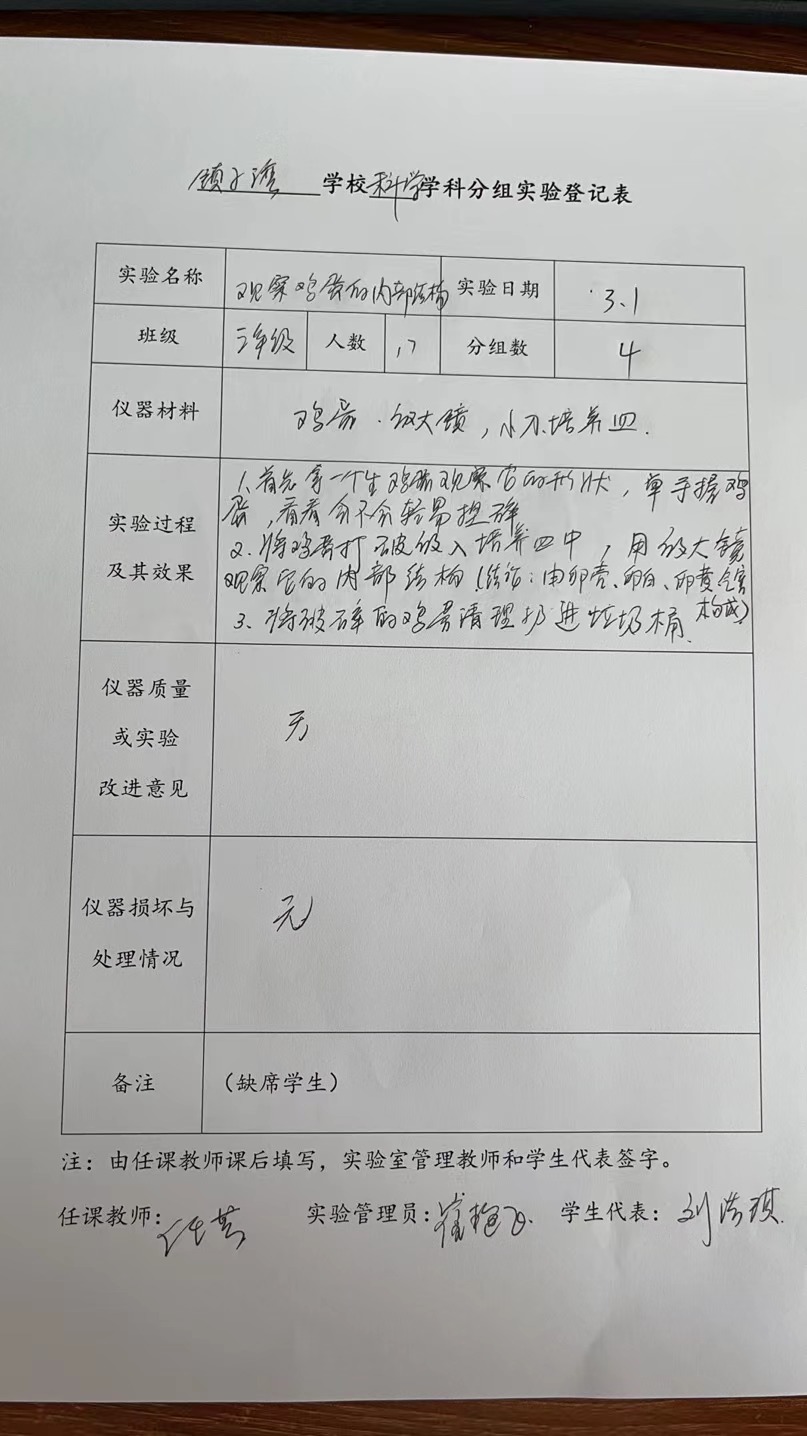 镇子湾 学校科学学科分组实验登记表
实验名称 观察鸡蛋的内部结构 实验日期 3.1
班级 三年级 人数 17 分组数 4
仪器材料 鸡蛋.放大镜,小刀.培养皿.
实验过程
及其效果
1.首先拿一个生鸡蛋观察它的形状,单手握鸡
蛋,看看会不会轻易捏碎
2.将鸡蛋打破放入培养皿中,用放大镜
观察它的内部结构(结论:由卵壳、卵白、卵黄、气室
构成)
3、将破碎的鸡蛋清理扔进垃圾桶.
仪器质量
或实验
改进意见
无
仪器损坏与
处理情况
无
备注 (缺席学生)
注:由任课教师课后填写,实验室管理教师和学生代表签字。
任课教师: 实验管理员: 学生代表:刘